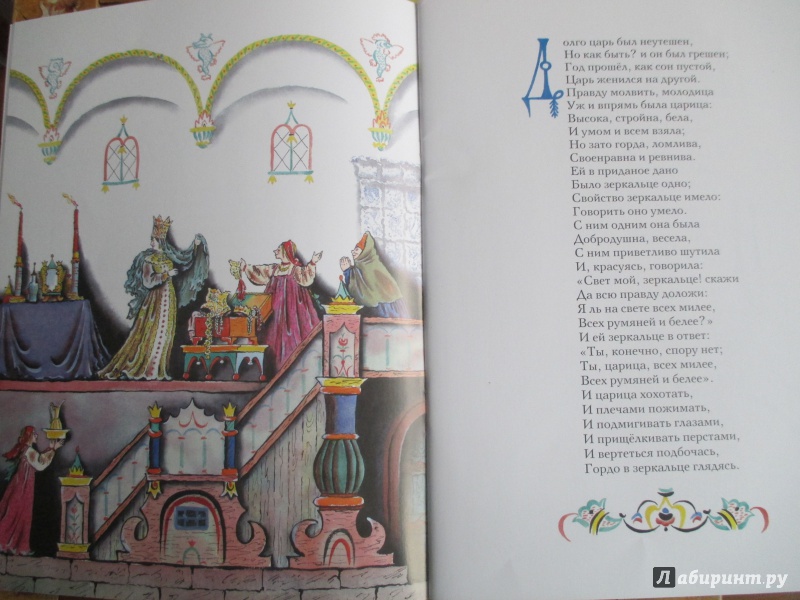 Долго царь был неутешен,
Но как быть? и он был грешен;
Год прошёл, как сон пустой,
Царь женился на другой.
Правду молвить, молодица
Уж и впрямь была царица:
Высока, стройна, бела,
И умом и всем взяла;
Но зато горда, ломлива,
Своенравна и ревнива.
Ей в приданое дано
Было зеркальце одно;
Свойство зеркальце имело:
Говорить оно умело.
С ним одним она была
Добродушна, весела,
С ним приветливо шутила
И, красуясь, говорила:
«Свет мой, зеркальце! скажи
Да всю правду доложи:
Я ль на свете всех милее,
Всех румяней и белее?»
И ей зеркальце в ответ:
«Ты, конечно, спору нет;
Ты, царица, всех милее,
Всех румяней и белее».
И царица хохотать,
И плечами пожимать,
И подмигивать глазами,
И прищёлкивать перстами,
И вертеться подбочась,
Гордо в зеркальце глядясь.
Лабиринт.ру